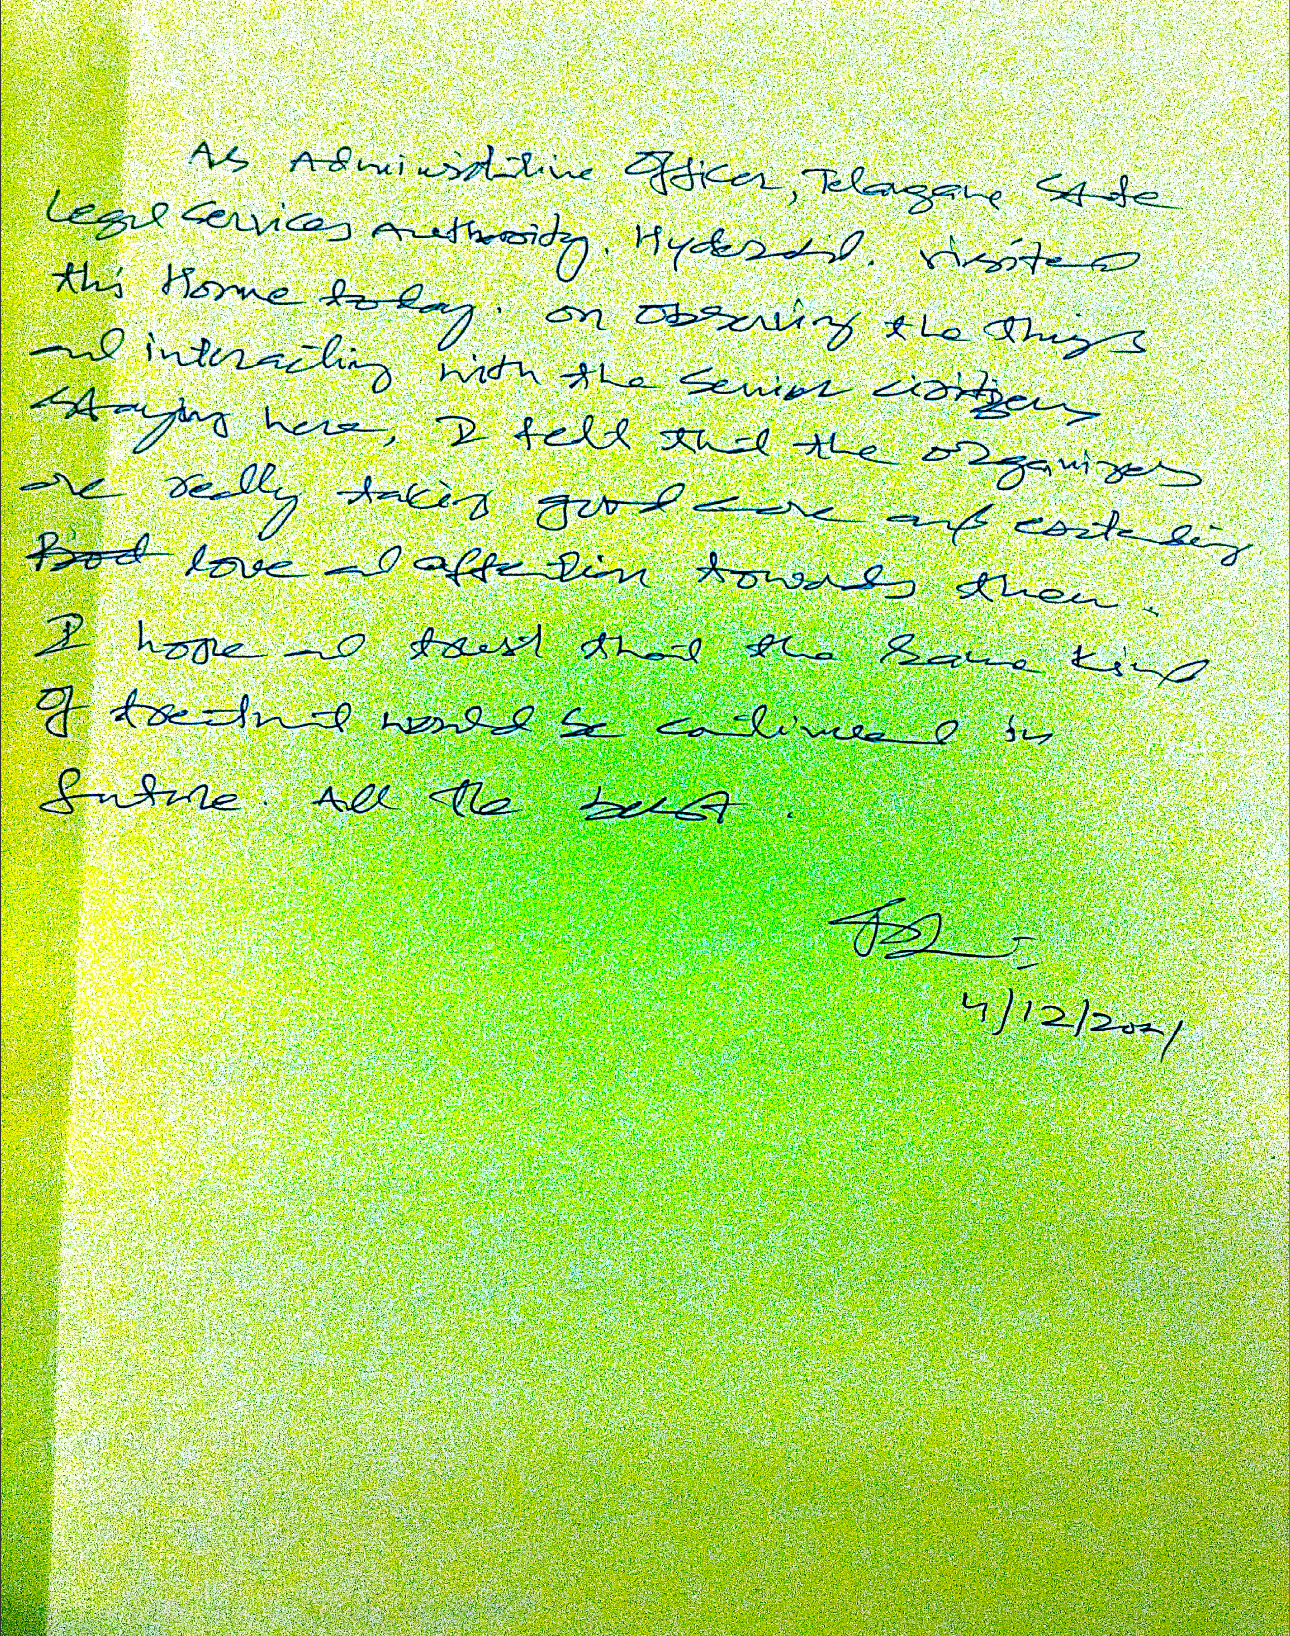 As Administrative Officer, Telangana State
Legal Services Authority, Hyderabad. visited
this Home today. on observing the things
and interacting with the Senior citizens
staying here, I felt that the organizers
are really taking good care and extending
love and affection towards them.
I hope and trust that the same kind
of treatment would be continued in
future. All the best.
4/12/2021